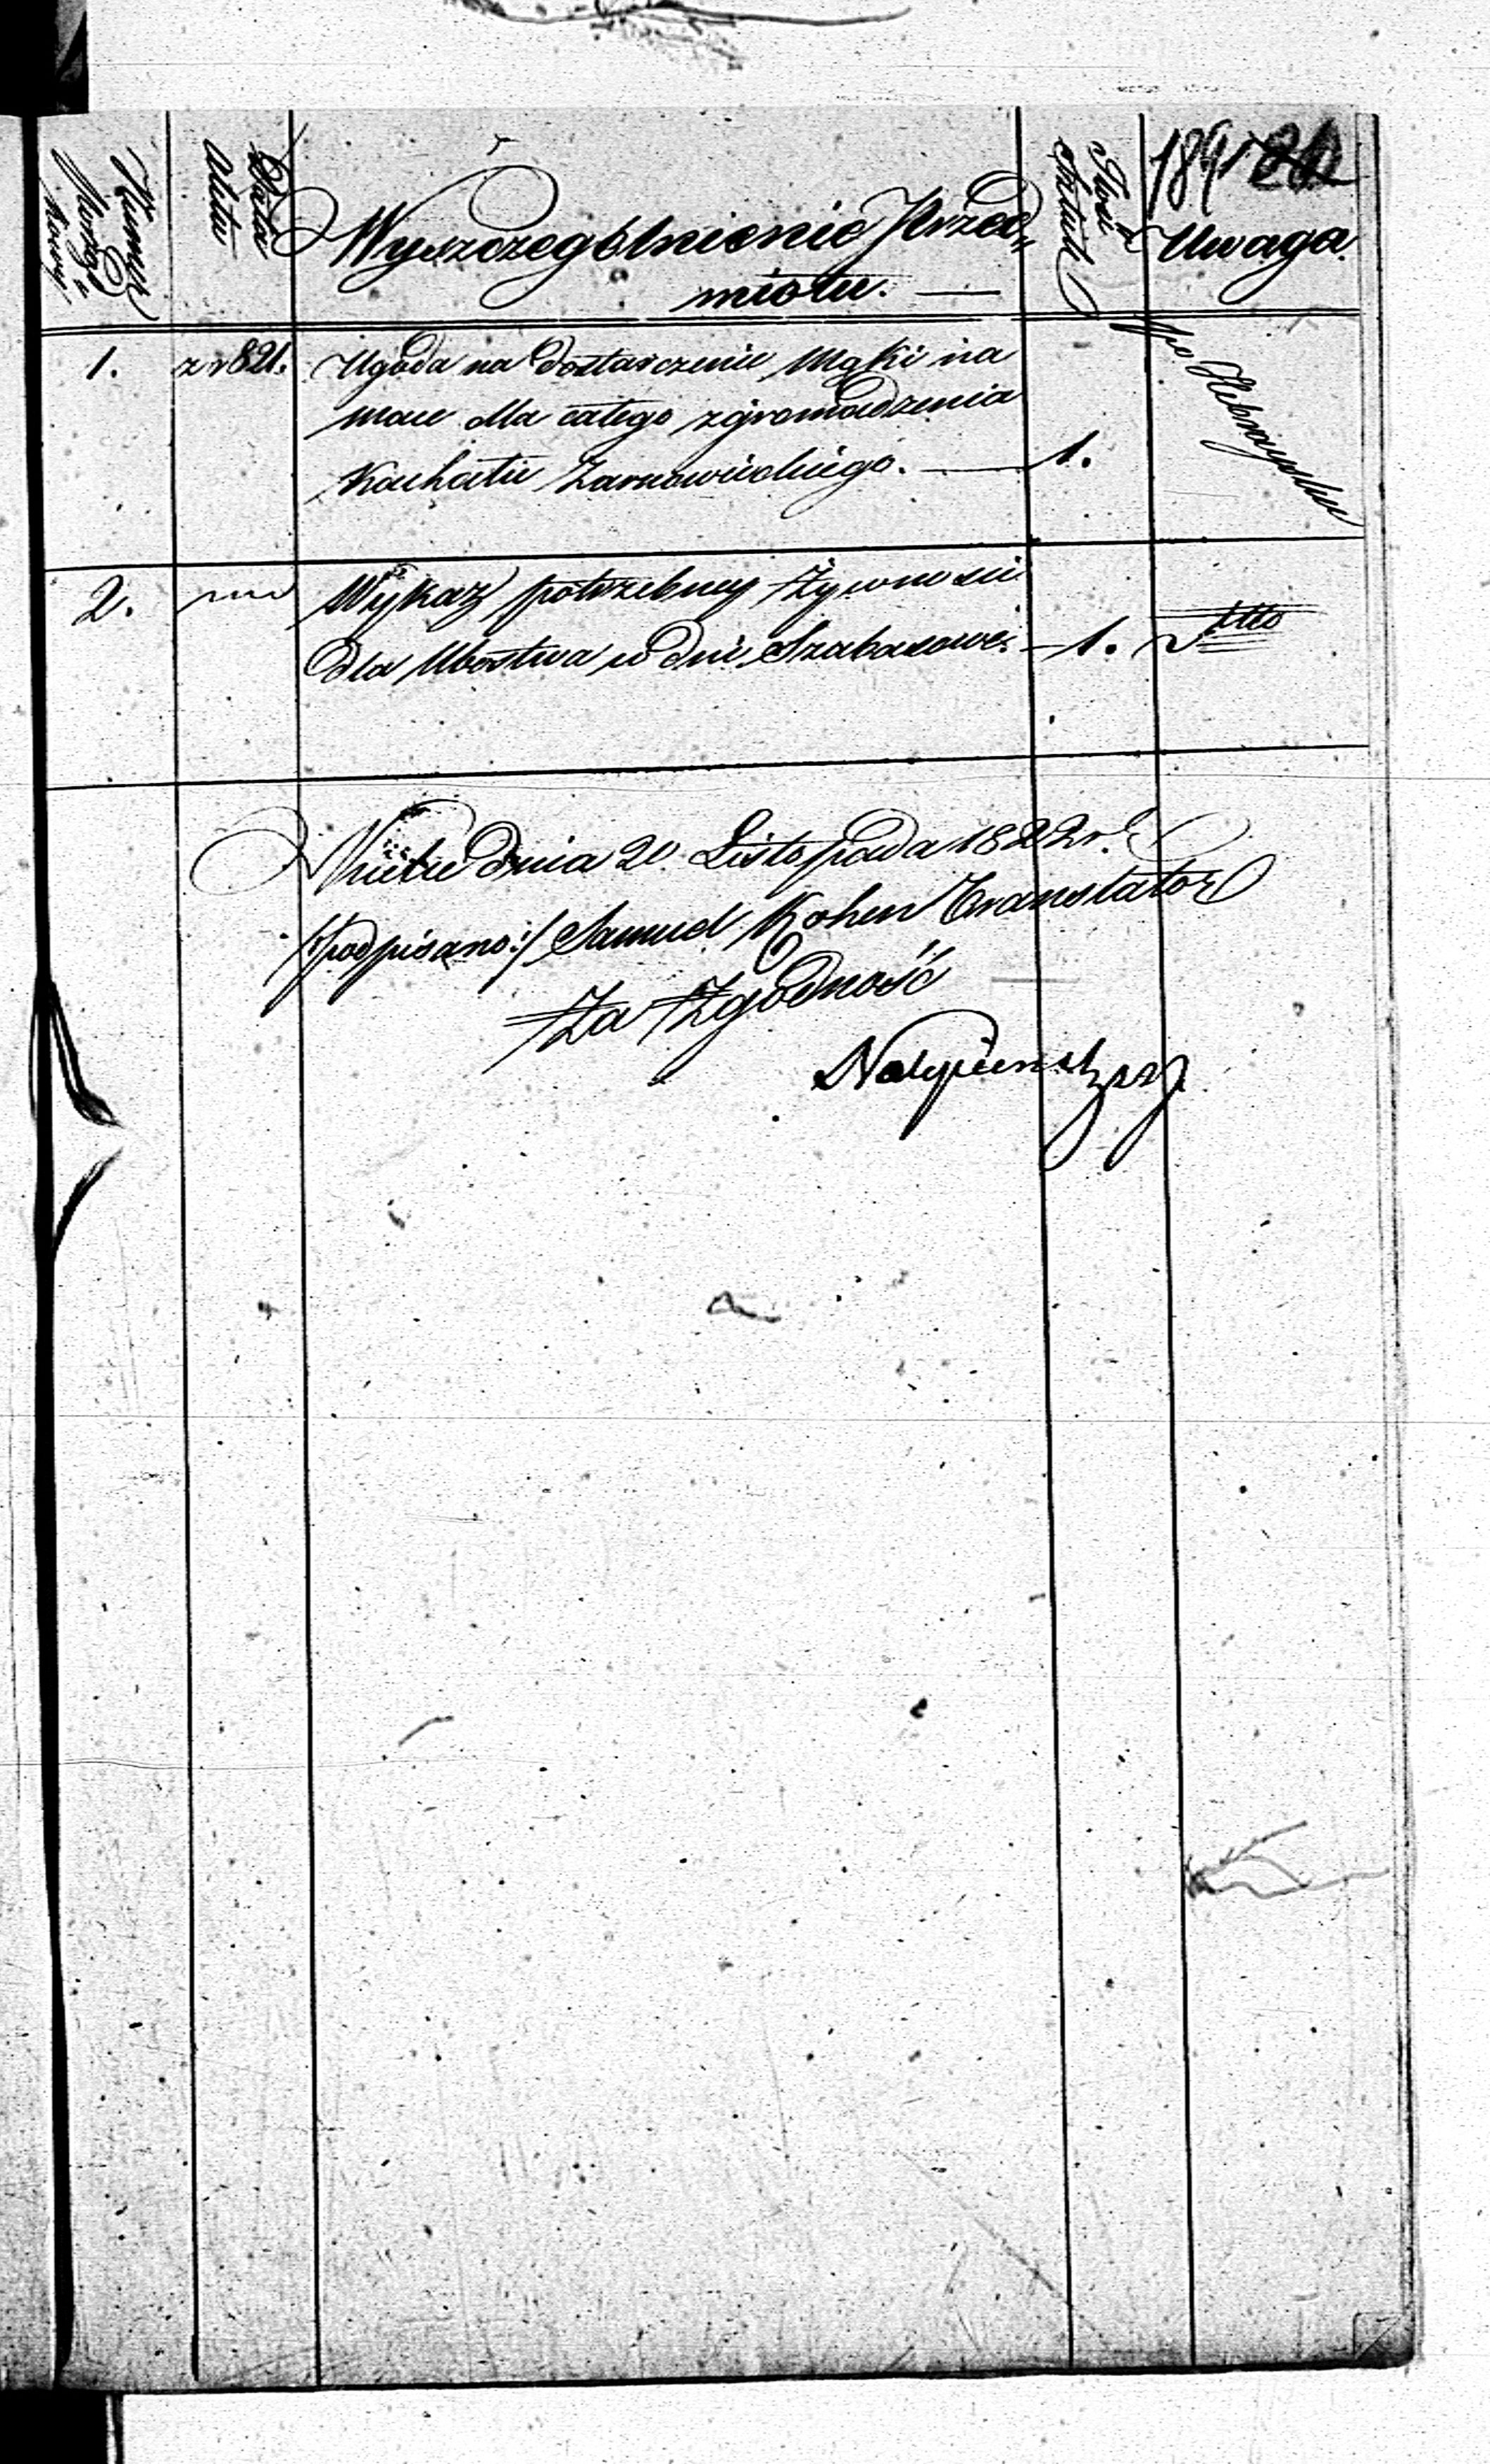 189
Numer
Data
aktu
Wyszczególnienie Przed„
miotu. —
Ilość
sztuk
Uwaga.
1. z r 821. Ugoda na dostarczenie Mąki na
mace dla całego zgromadzenia
Kachału Żarnowieckiego. — 1. po Hebraysku
2. Wykaz potrzebney Żywności
dla Ubostwa w dnie Szabasowe. — 1. dtto
dnia 20. Listopada 1822 r.
/:podpisano:/ Samuel Kohen Translator
Za Zgodność